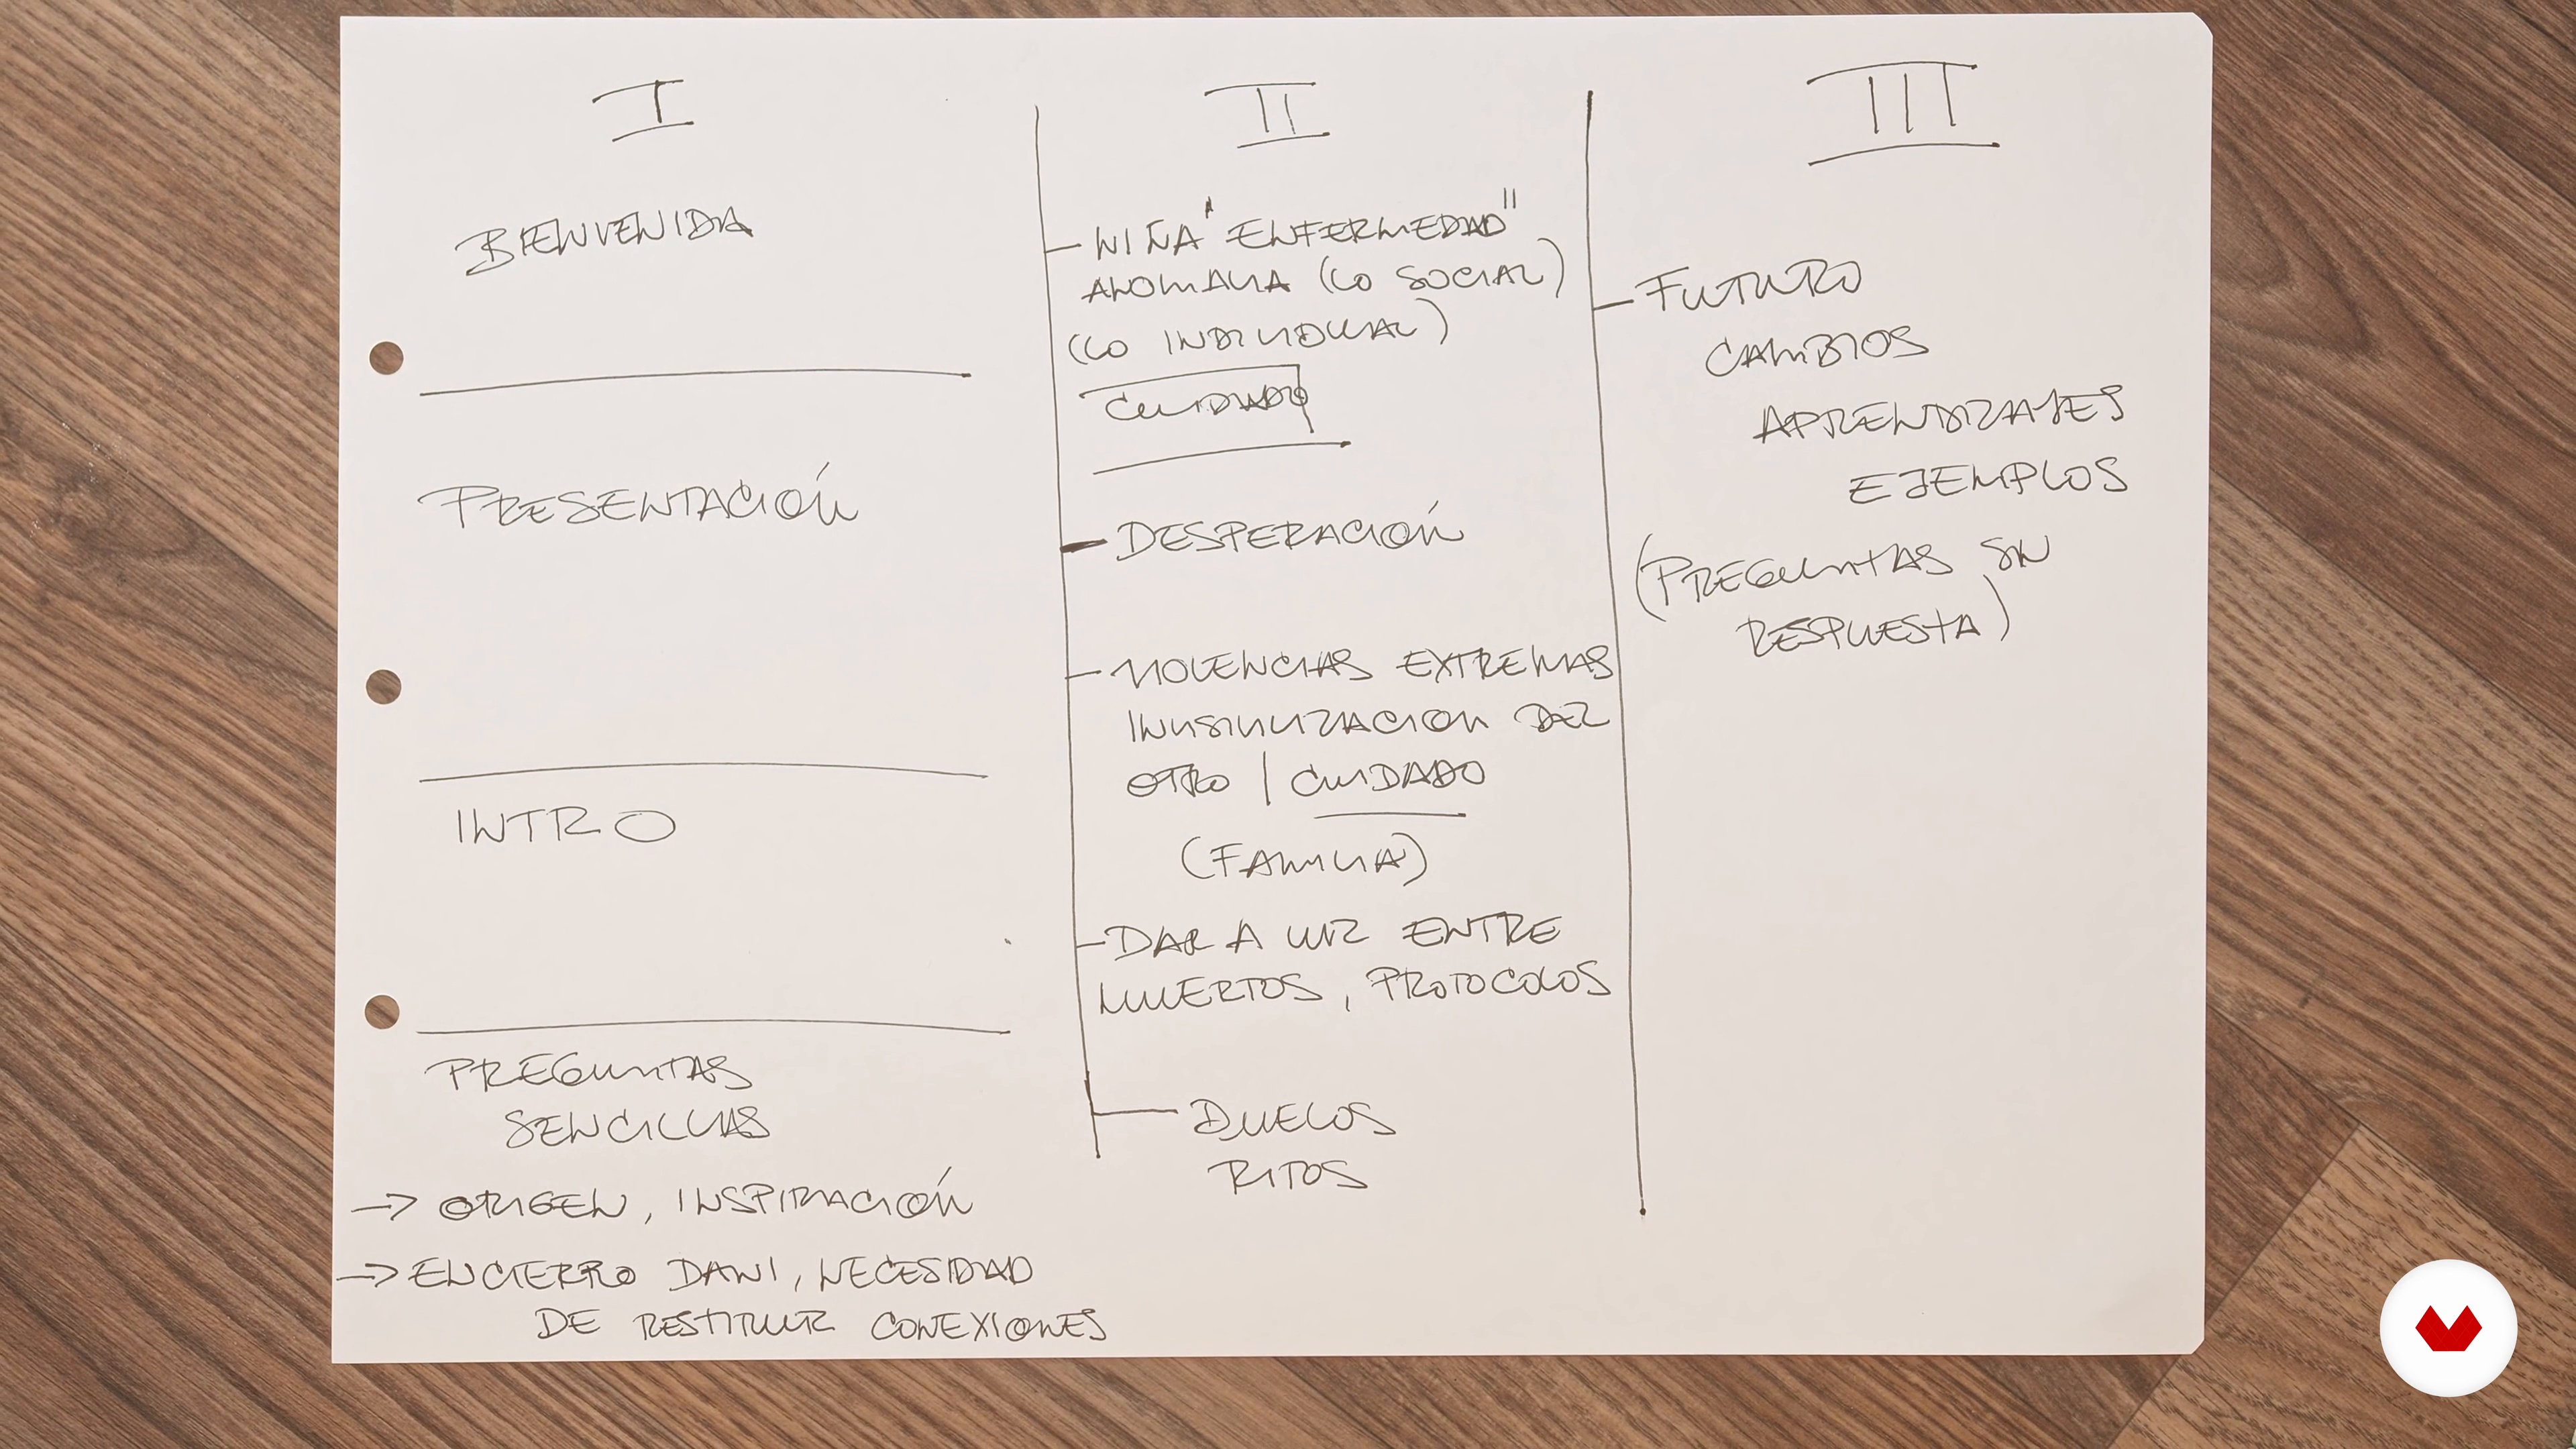 I
BIENVENIDA
PRESENTACIÓN
INTRO
PREGUNTAS
SENCILLAS
→ ORIGEN, INSPIRACIÓN
→ ENCIERRO DANI, NECESIDAD
DE RESTITUIR CONEXIONES
II
- NIÑA "ENFERMEDAD"
ANOMALIA (LO SOCIAL)
(LO INDIVIDUAL)
CUIDADO
- DESPERACIÓN
- VIOLENCIAS EXTREMAS
INVISIVILIZACION DEL
OTRO | CUIDADO
(FAMILIA)
- DAR A LUZ ENTRE
MUERTOS, PROTOCOLOS
- DUELOS
RITOS
III
- FUTURO
CAMBIOS
APRENDIZAJES
EJEMPLOS
(PREGUNTAS SIN
RESPUESTA)